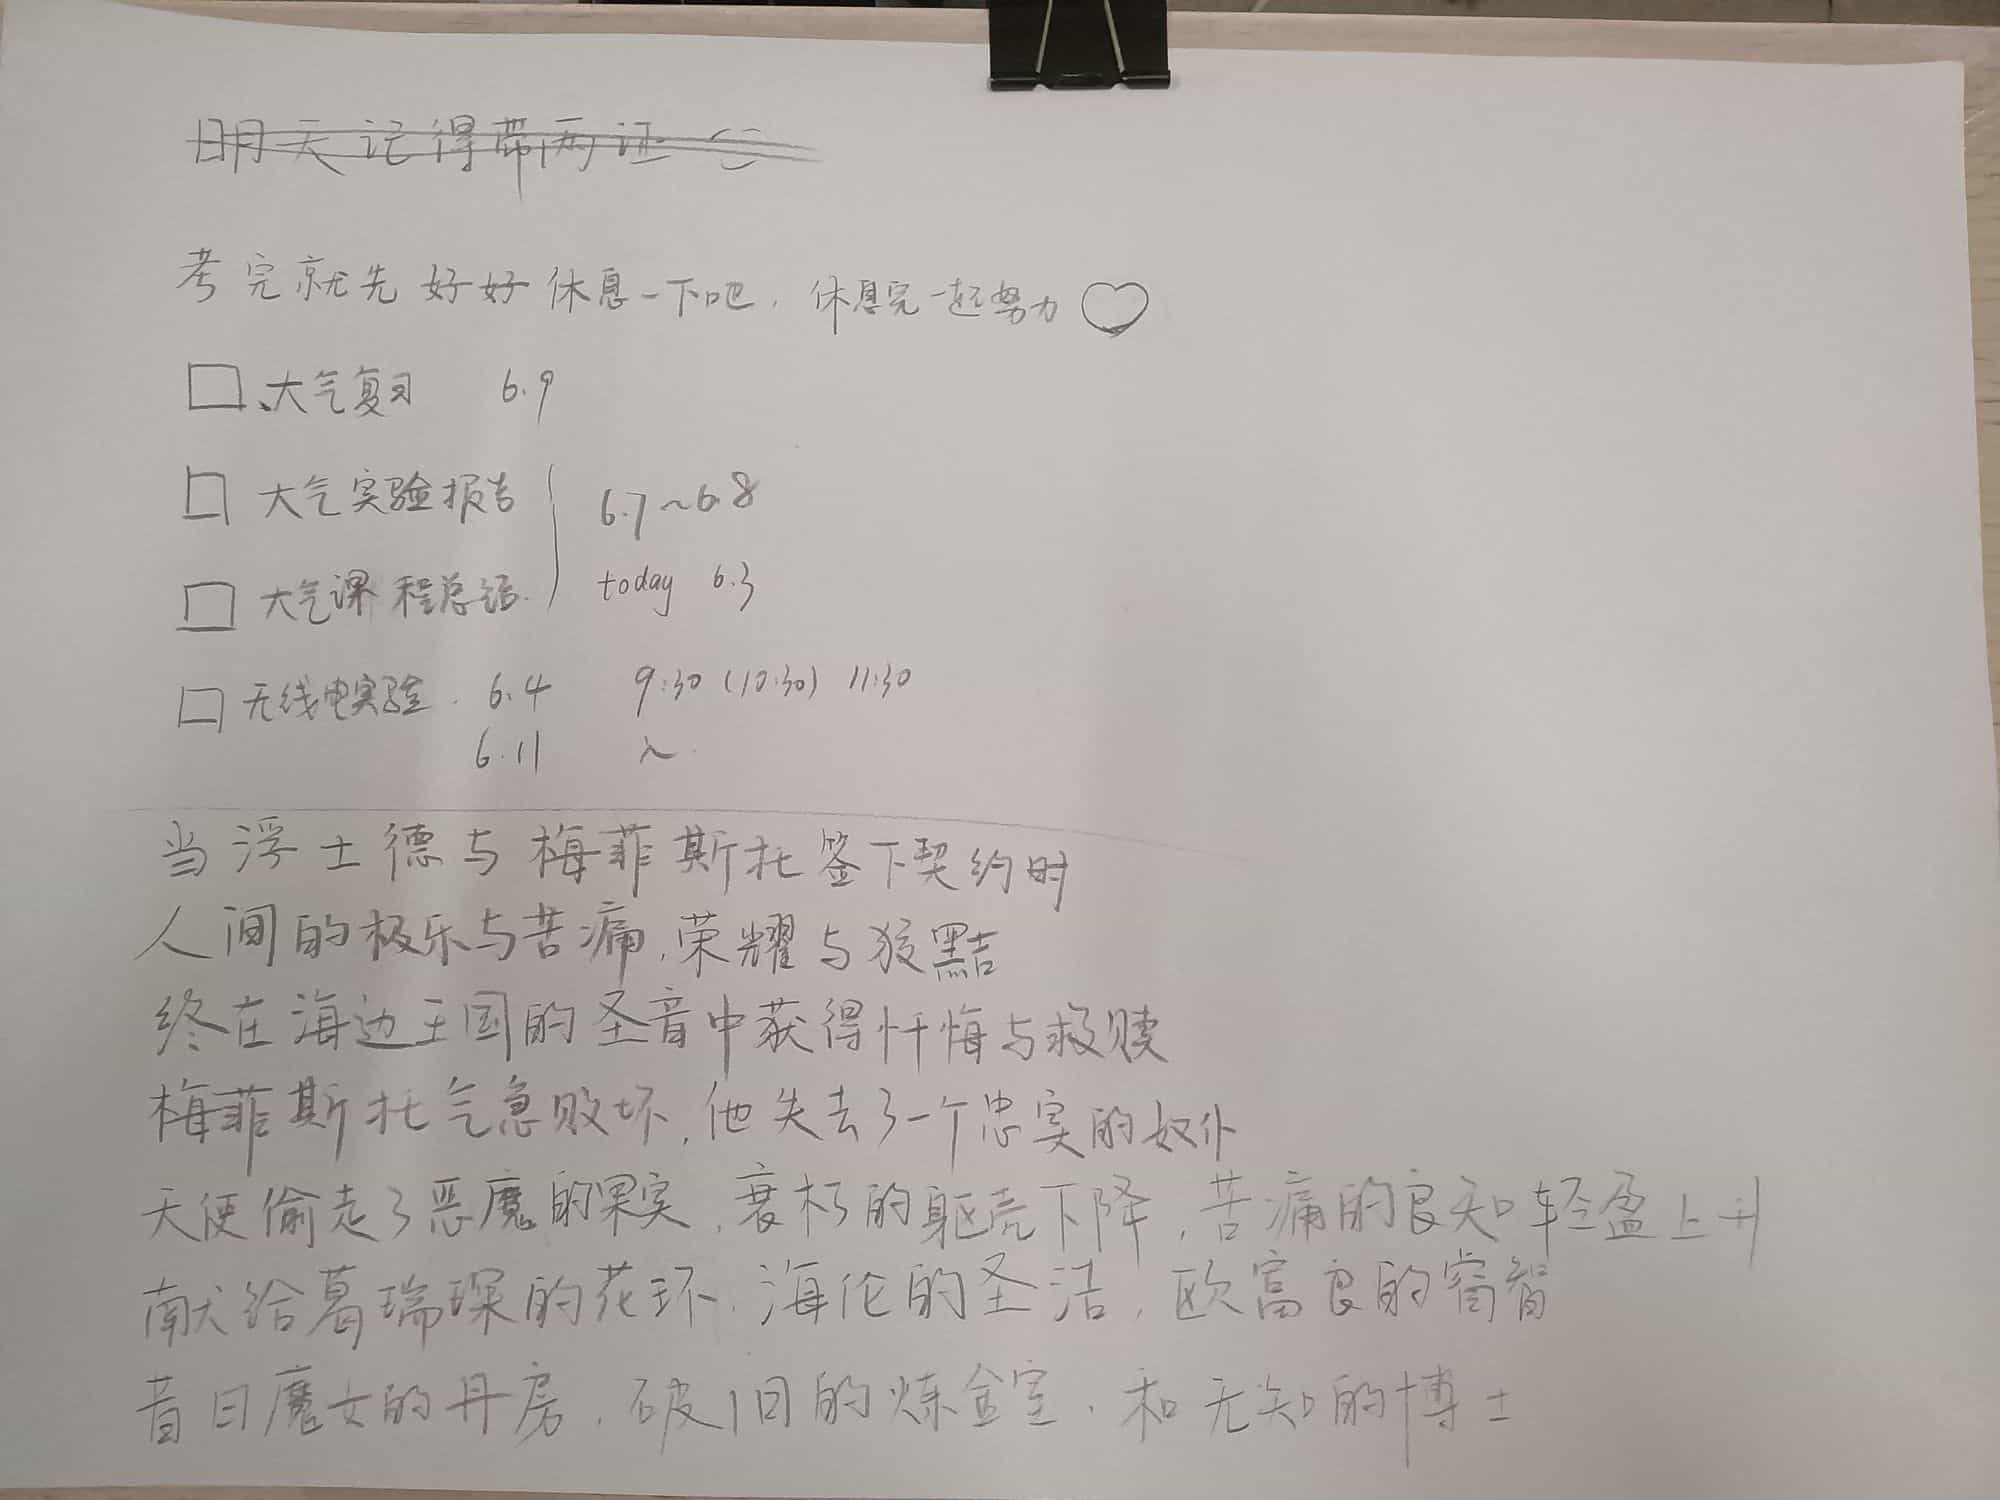 明天记得带两证
考完就先好好休息一下吧，休息完一起努力♡
□、大气复习 6.9
□ 大气实验报告 6.7~6.8
□ 大气课程总结. today 6.3
□ 无线电实验. 6.4 9:30 (10:30) 11:30
6.11
当浮士德与梅菲斯托签下契约时
人间的极乐与苦痛，荣耀与狡黠
终在海边王国的圣音中获得忏悔与救赎
梅菲斯托气急败坏，他失去了一个忠实的奴仆
天使偷走了恶魔的果实，衰朽的躯壳下降，苦痛的良知轻盈上升
献给葛瑞琛的花环，海伦的圣洁，欧富良的睿智
昔日魔女的丹房，破旧的炼金室，和无知的博士